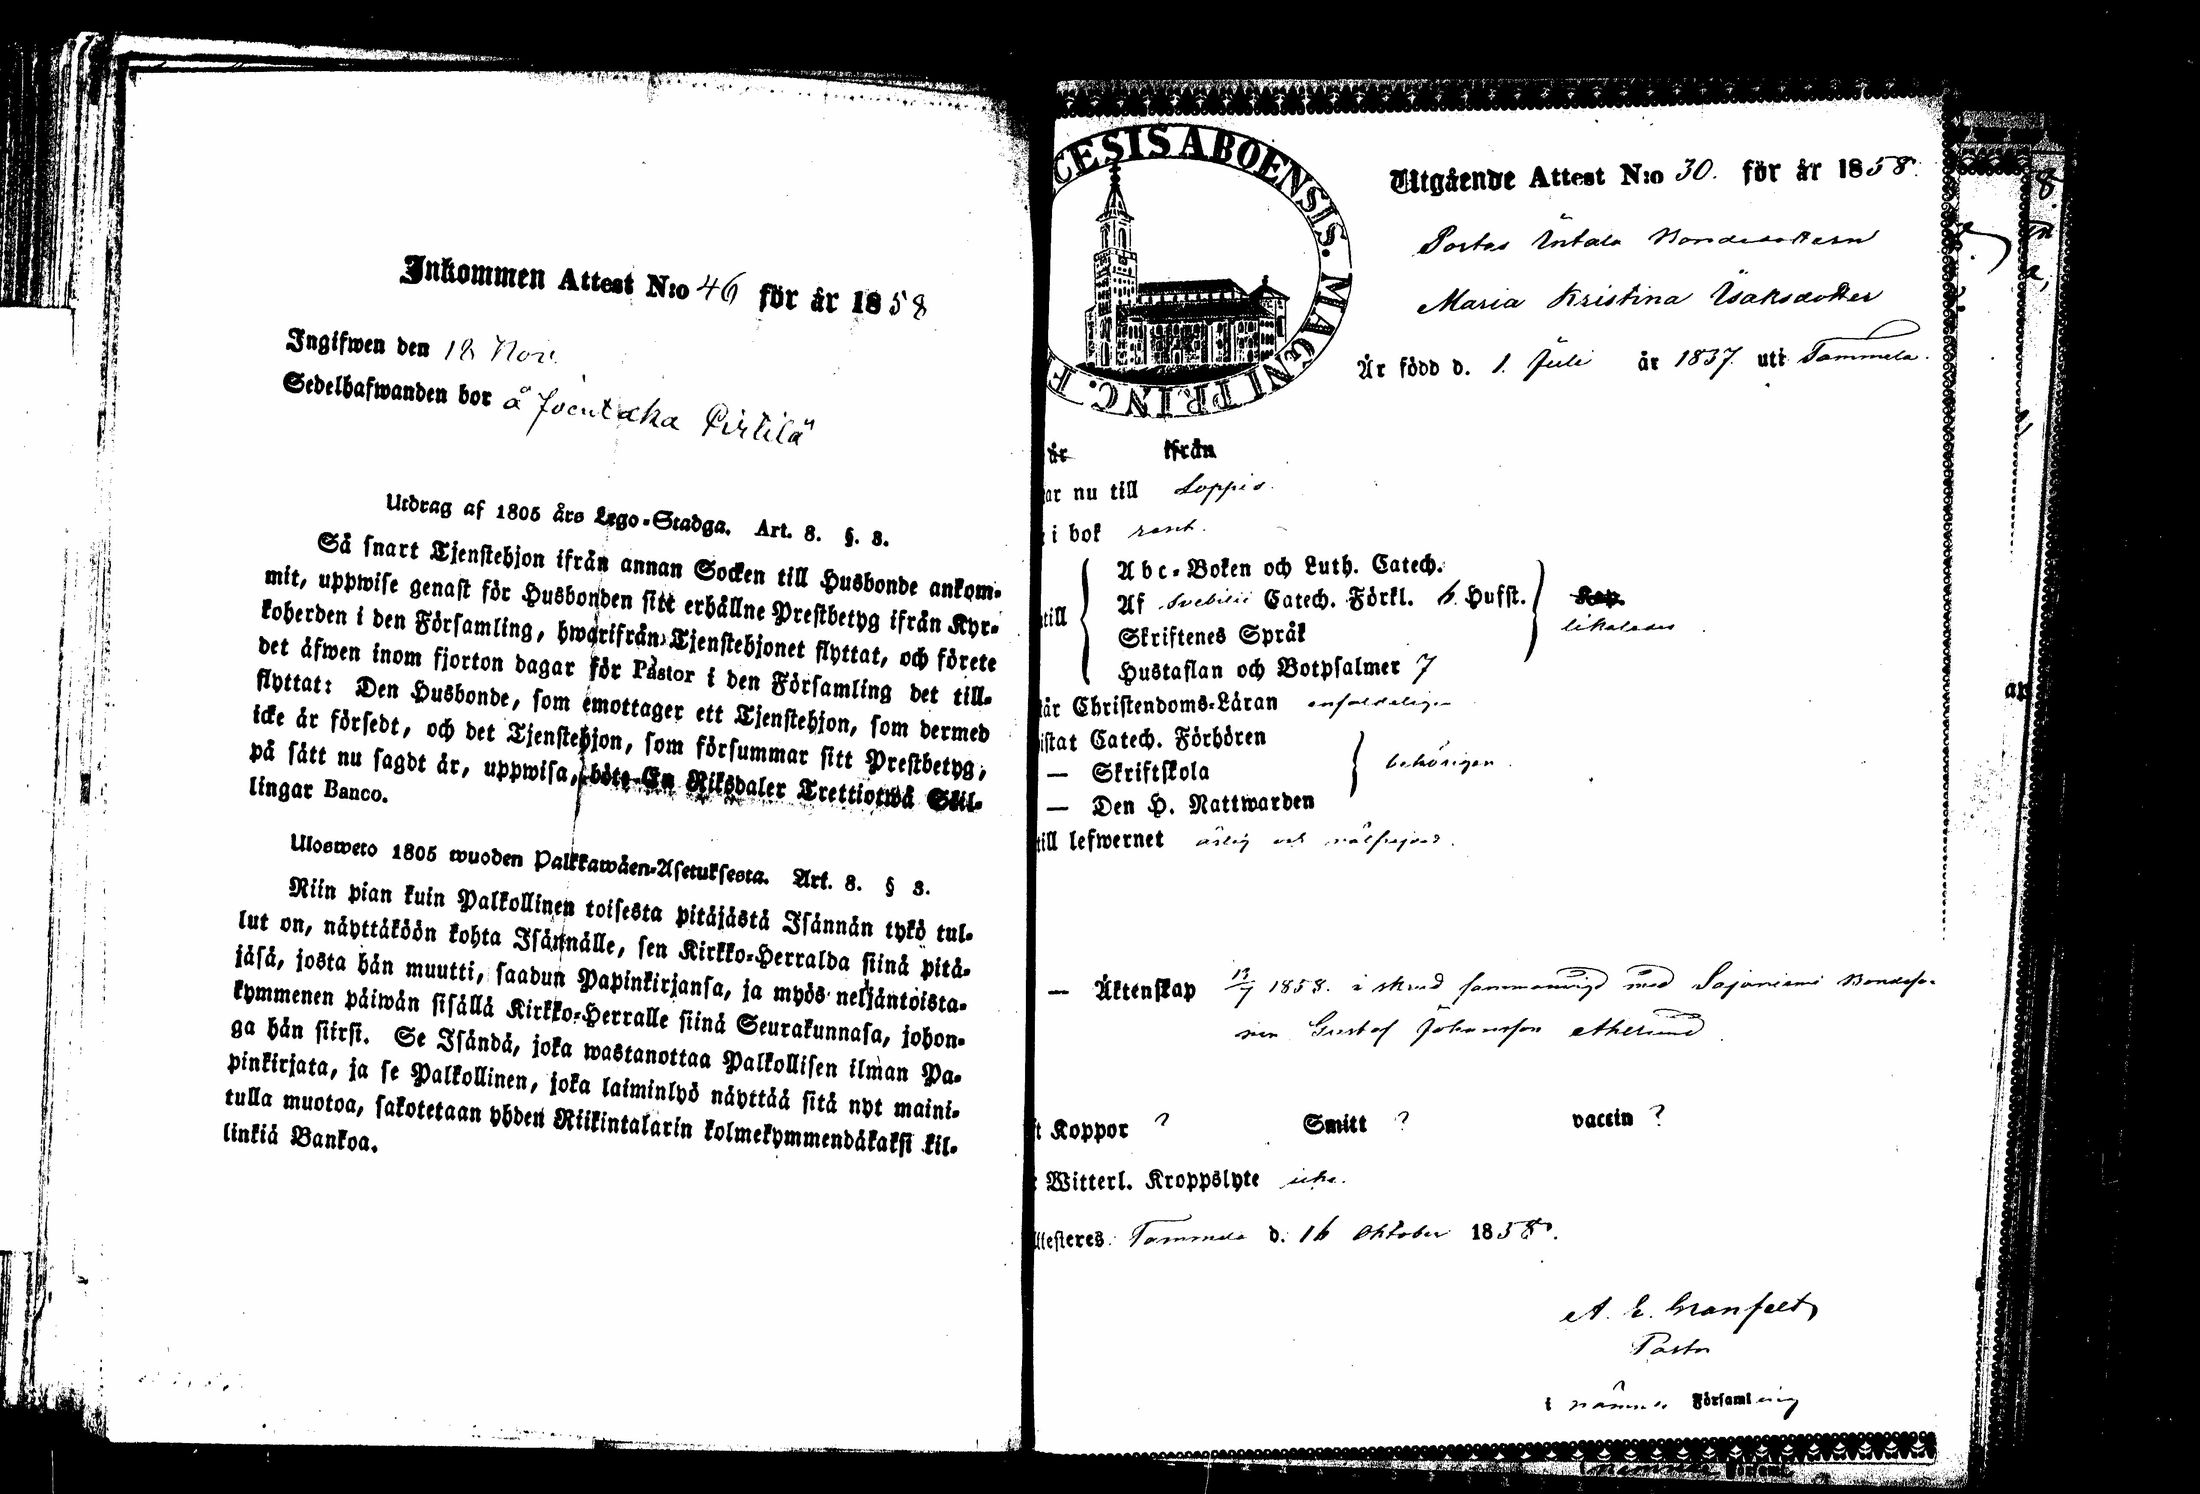 Inkommen Attest N:o 46 för år 1858
Ingifwen den 18 Nov.
Sedelhafwanden bor å Joentaka Pirtilä
Utdrag af 1805 års Lego-Stadga. Art. 8. §. 3.
Så snart Tjenstehjon ifrån annan Socken till Husbonde ankom-
mit, uppwise genast för Husbonden sitt erhållne Prestbetyg ifrån Kyr-
koherden i den Församling, hwarifrån Tjenstehjonet flyttat, och förete
det äfwen inom fjorton dagar för Pastor i den Församling det till-
flyttat: Den Husbonde, som emottager ett Tjenstehjon, som dermed
icke är försedt, och det Tjenstehjon, som försummar sitt Prestbetyg,
på sätt nu sagdt är, uppwisa, böte En Riksdaler Trettiotwå Skil-
lingar Banco.
Ulosweto 1805 wuoden Palkkawäen-Asetuksesta. Art. 8. § 3.
Niin pian kuin Palkollinen toisesta pitäjästä Isännän tykö tul-
lut on, näyttäköön kohta Isännälle, sen Kirkko-Herralda siinä pitä-
jäsä, josta hän muutti, saadun Papinkirjansa, ja myös neljäntoista-
kymmenen päiwän sisällä Kirkko-Herralle siinä Seurakunnasa, johon-
ga hän siirsi. Se Isändä, joka wastanottaa Palkollisen ilman Pa-
pinkirjata, ja se Palkollinen, joka laiminlyö näyttää sitä nyt maini-
tulla muotoa, sakotetaan yhden Riikintalarin kolmekymmendäkaksi kil-
linkiä Bankoa.
CESIS ABOENSIS. MAGNI PRINC. F
Utgående Attest N:o 30. för år 1858.
Portas Bondedottern
Maria Kristina Isaksdotter
Är född d. 1. Juli år 1837. uti Tammela.
är ifrån
ar nu till Loppis.
i bok rent.
till
Abc-Boken och Luth. Catech.
Af Svebilii Catech. Förkl. h. Husst.
Skriftenes Språk
Hustaflan och Botpsalmer 7
likaledes
år Christendoms-Läran enfaldeligen
istat Catech. Förhören
— Skriftskola
— Den H. Nattwarden
behörigen.
till lefwernet ärlig och välfrejdad.
— Äktenskap 13/7 1858. i stånd sammanvigd med Sajoniemi Bondeso-
nen Gustaf Johansson Åkerlund.
t Koppor ? Smitt ? vaccin ?
Witterl. Kroppslyte icke.
ttesteres Tammela d. 16 Oktober 1858.
A. E. Granfelt,
Pastor
i nämnde Församling